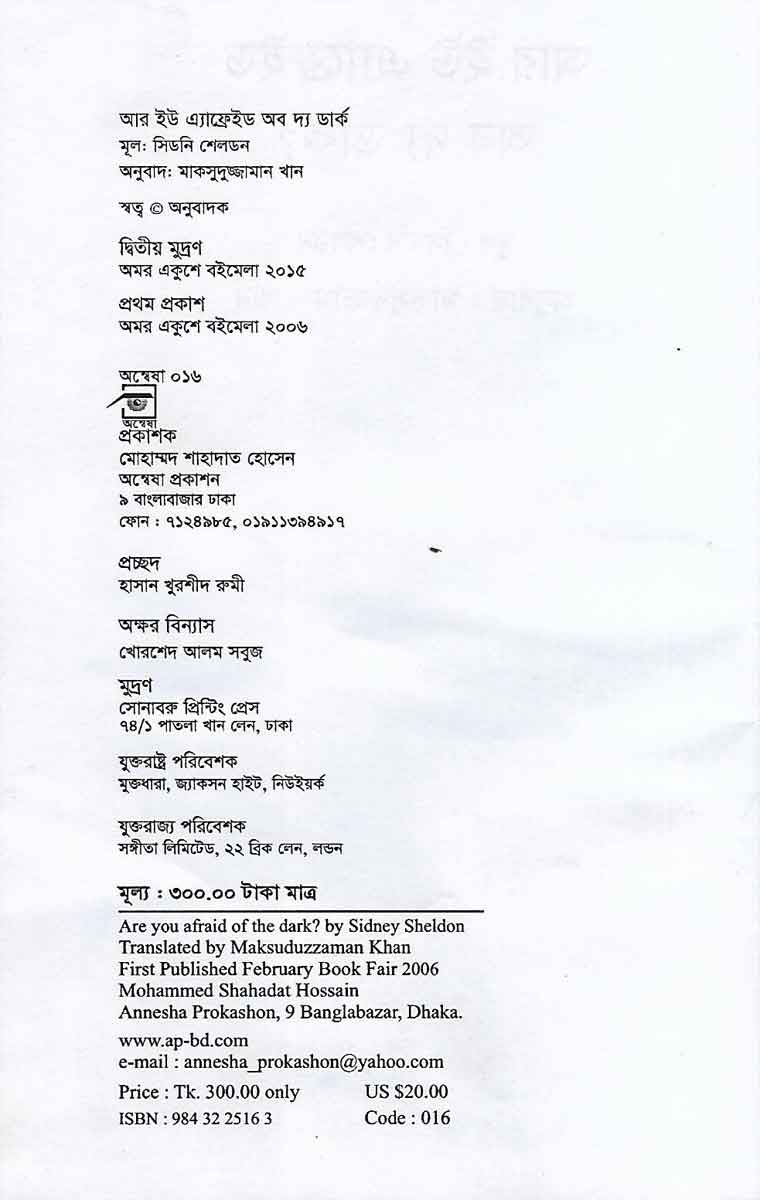 আর ইউ এ্যাফ্রেইড অব দ্য ডার্ক
মূল: সিডনি শেলডন
অনুবাদ: মাকসুদুজ্জামান খান
স্বত্ব © অনুবাদক
দ্বিতীয় মুদ্রণ
অমর একুশে বইমেলা ২০১৫
প্রথম প্রকাশ
অমর একুশে বইমেলা ২০০৬
অন্বেষা ০১৬
অন্বেষা
প্রকাশক
মোহাম্মদ শাহাদাত হোসেন
অন্বেষা প্রকাশন
৯ বাংলাবাজার ঢাকা
ফোন : ৭১২৪৯৮৫, ০১৯১১৩৯৪৯১৭
প্রচ্ছদ
হাসান খুরশীদ রুমী
অক্ষর বিন্যাস
খোরশেদ আলম সবুজ
মুদ্রণ
সোনাবরু প্রিন্টিং প্রেস
৭৪/১ পাতলা খান লেন, ঢাকা
যুক্তরাষ্ট্র পরিবেশক
মুক্তধারা, জ্যাকসন হাইট, নিউইয়র্ক
যুক্তরাজ্য পরিবেশক
সঙ্গীতা লিমিটেড, ২২ ব্রিক লেন, লন্ডন
মূল্য : ৩০০.০০ টাকা মাত্র
Are you afraid of the dark? by Sidney Sheldon
Translated by Maksuduzzaman Khan
First Published February Book Fair 2006
Mohammed Shahadat Hossain
Annesha Prokashon, 9 Banglabazar, Dhaka.
www.ap-bd.com
e-mail : annesha_prokashon@yahoo.com
Price : Tk. 300.00 only US $20.00
ISBN : 984 32 2516 3 Code : 016